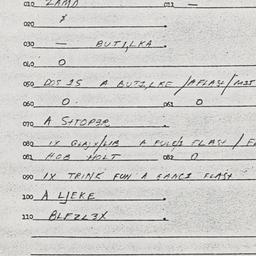 010 LAMA 011 —
020
030 — BUTILKA
040 O
050 DOS IS A BUTILKE / A FLASH /
060 O. 061 O
070 A STOPER
080 IX GLAJX/LIB A FULE/S FLASH /
081 HOB HOLT 082 O
090 IX TRINK FUN A GANCE FLASH
100 A LJEKE
110